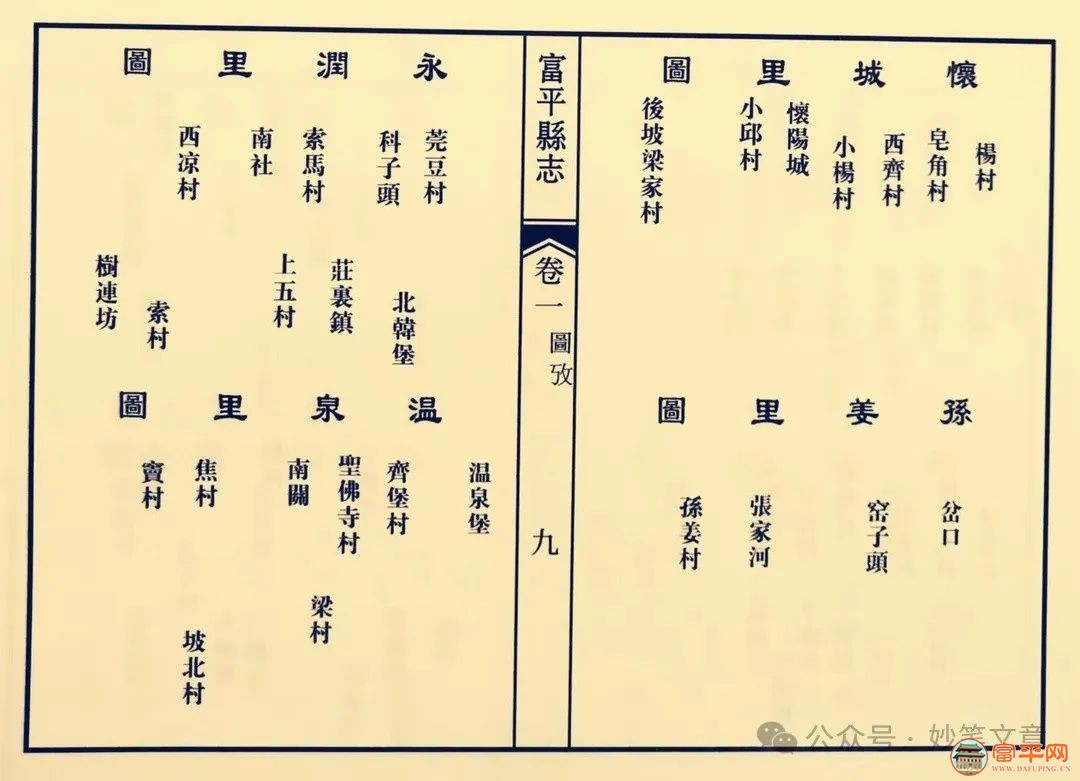 懷城里圖
楊村
皂角村
西齊村
小楊村
懷陽城
小邱村
後坡梁家村
孫姜里圖
岔口
窑子頭
張家河
孫姜村
富平縣志
卷一
圖攷
九
永潤里圖
莞豆村
科子頭
北韓堡
索馬村
莊裏鎮
南社
上五村
西凉村
索村
樹連坊
温泉里圖
温泉堡
齊堡村
聖佛寺村
梁村
南關
焦村
坡北村
竇村
公众号·妙笔文章
富平网
WWW.DAFUPING.CN